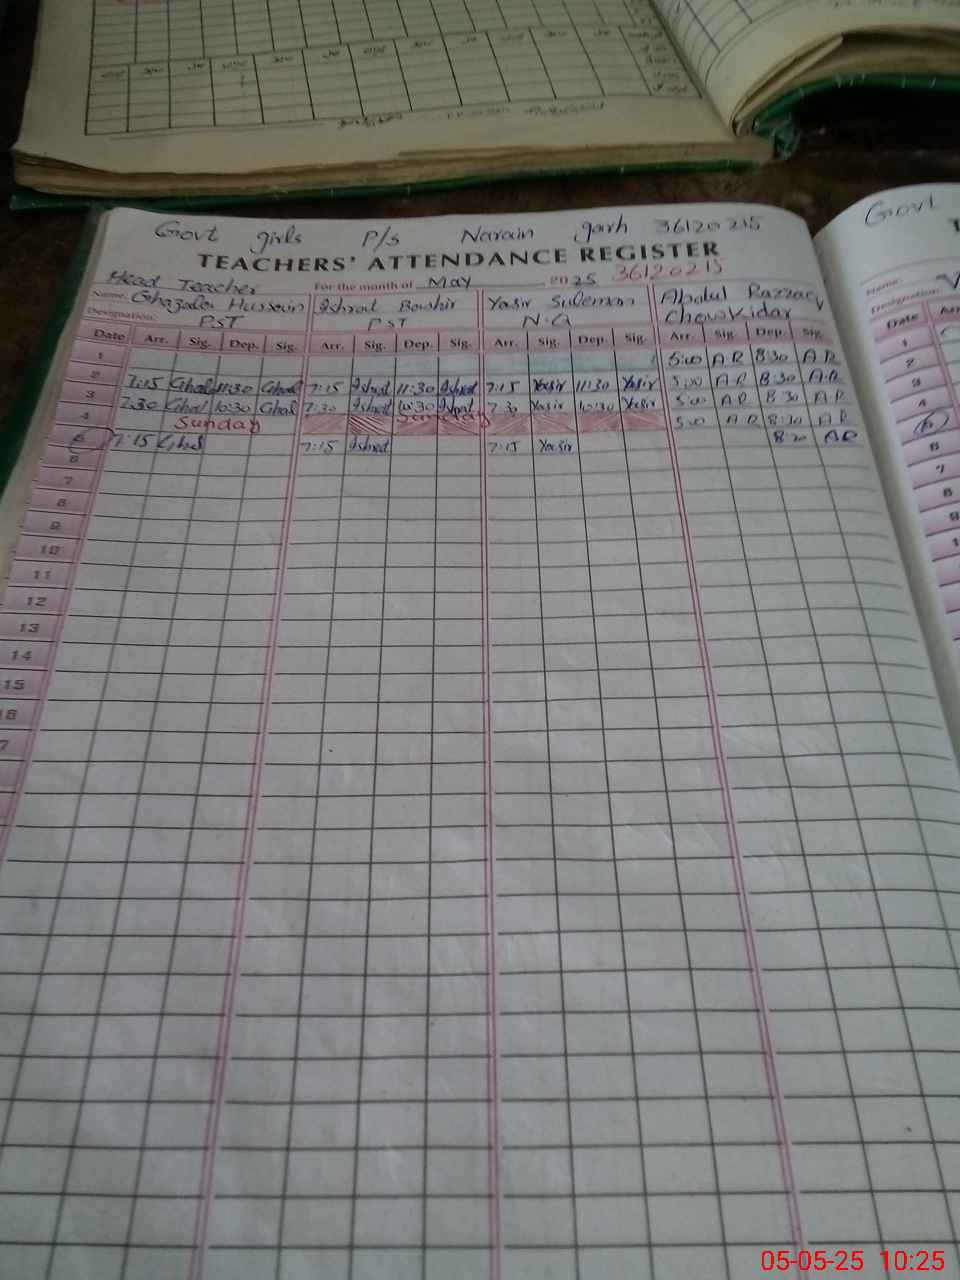 Govt girls P/s Narain garh 36120215
TEACHERS' ATTENDANCE REGISTER
Head Teacher For the month of May 2025 36120215
Name: Ghazala Hussain Ishrat Yasir Suleman Abdul Razzaq
Designation: PST PST N.Q Chowkidar
Date Arr. Sig. Dep. Sig. Arr. Sig. Dep. Sig. Arr. Sig. Dep. Sig. Arr. Sig. Dep. Sig.
1 5:00 AR 8:30 AR
2 7:15 Ghal 11:30 Ghal 7:15 Ishrat 11:30 Ishrat 7:15 Yasir 11:30 Yasir 5:00 AR 8:30 AR
3 7:30 Ghal 10:30 Ghal 7:30 Ishrat 10:30 Ishrat 7:30 Yasir 10:30 Yasir 5:00 AR 8:30 AR
4 Sunday Sunday 5:00 AR 8:30 AR
7:15 Ghal 7:15 Ishrat 7:15 Yasir 8:30 AR
6
7
8
9
10
11
12
13
14
15
16
7
Govt
Name:
Designation:
Date Arr
1
2
3
4
6
7
8
9
1
05-05-25 10:25